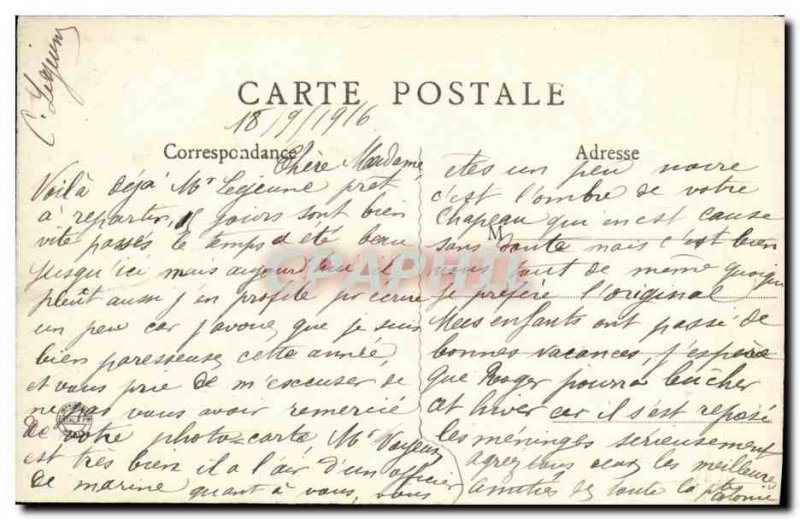 C. Lejeune
CARTE POSTALE
18/9/1916
Correspondance
Adresse
Chère Madame
Voilà déjà Mr Lejeune prêt
à repartir, 18 jours sont bien
vite passés le temps a été beau
jusqu'ici mais aujourd'hui il
pleut aussi j'en profite pr écrire
un peu car j'avoue que je suis
bien paresseuse cette année,
et vous prie de m'excuser de
ne pas vous avoir remercié
de votre photo-carte, Mr
est très bien il a l'air d'un officier
de marine quant à vous, vous
êtes un peu noire
c'est l'ombre de votre
chapeau qui en est cause
M
sans doute mais c'est bien
vous tout de même quoique
je préfère l'original
Mes enfants ont passé de
bonnes vacances, j'espère
que Roger pourra bûcher
cet hiver car il s'est reposé
les méninges sérieusement
agréez les meilleures
amitiés de toute la pte colonie
CPAPHIL